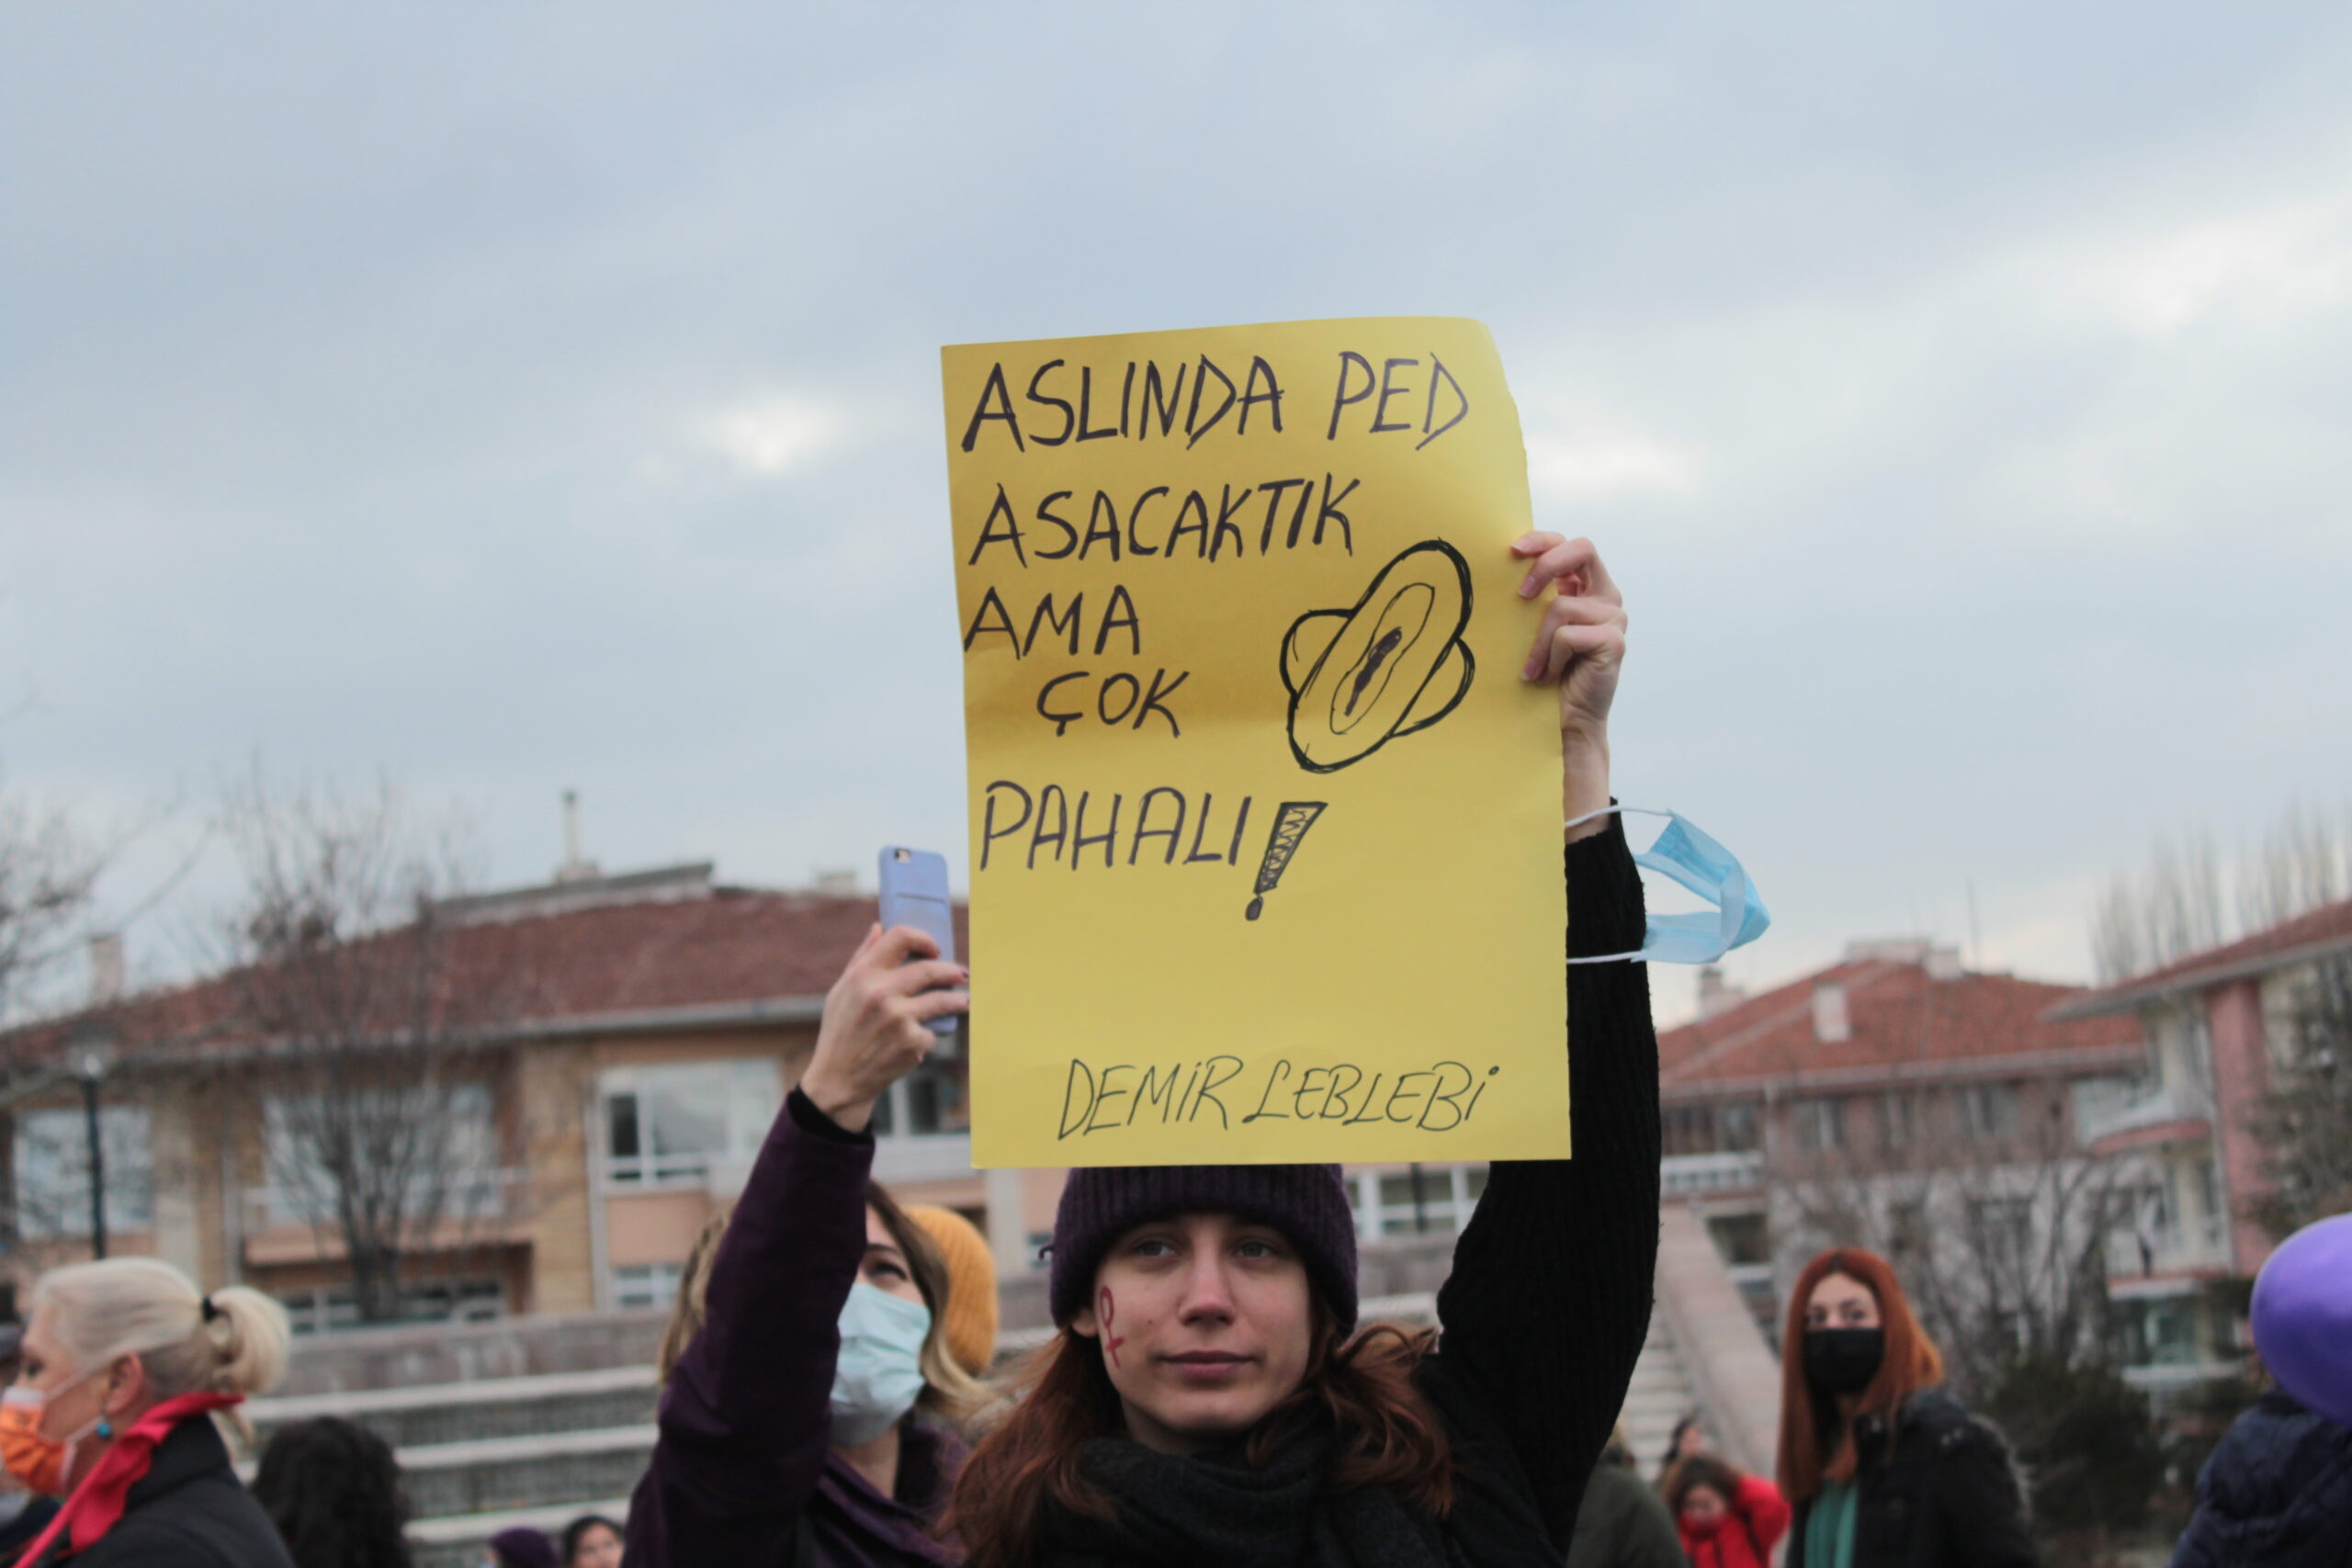 ASLINDA PED
ASACAKTIK
AMA
ÇOK
PAHALI!
DEMİR LEBLEBİ